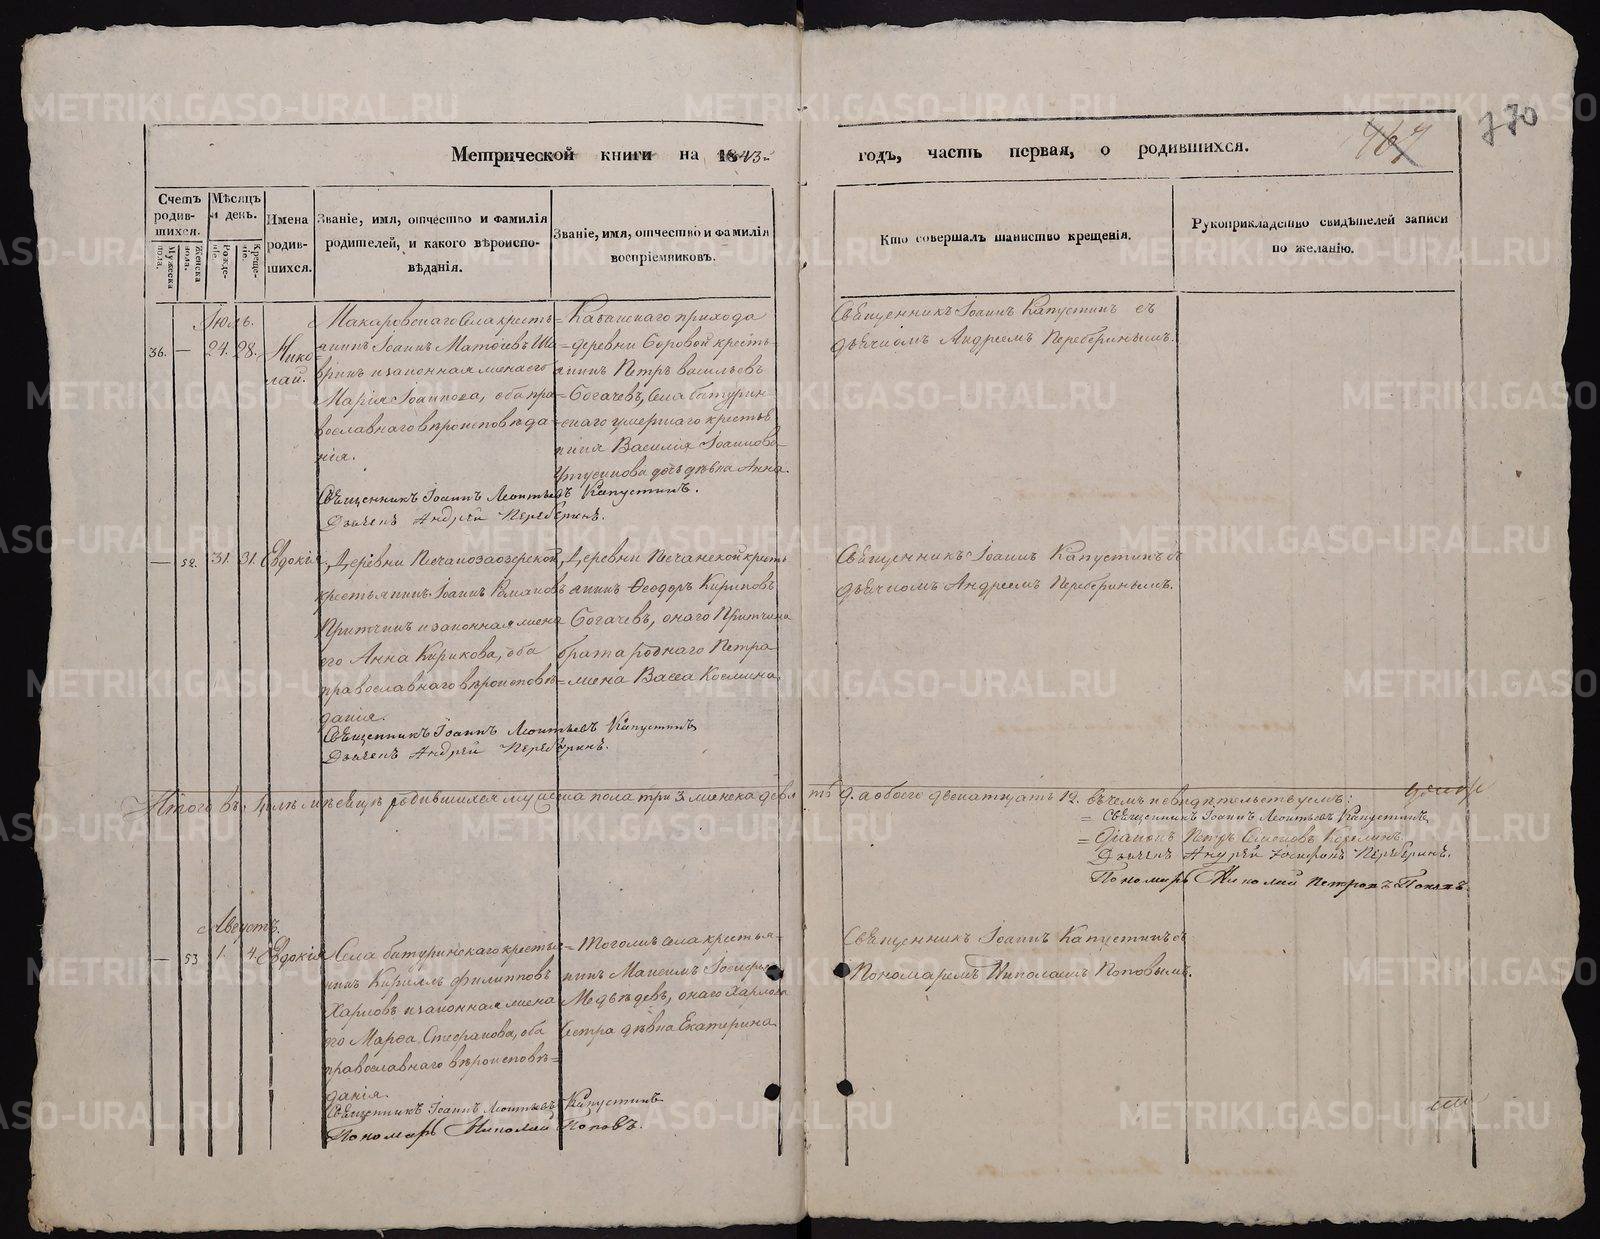 770
Метрической книги на 1843.
годъ, часть первая, о родившихся.
Счетъ родившихся.
Мужеска пола.
Женска пола.
Мѣсяцъ и день.
Рожденіе.
Крещеніе.
Имена родившихся.
Званіе, имя, отчество и фамилія
родителей, и какого вѣроиспо-
вѣданія.
Званіе, имя, отчество и фамилія
воспріемниковъ.
Кто совершалъ таинство крещенія.
Рукоприкладство свидѣтелей записи
по желанію.
Іюль.
36. — 24. 28. Нико
лай.
Макаровскаго села кресть
янинъ Іоаннъ
и законная жена его
Марія Іоаннова, оба пра
вославнаго вѣроисповѣда
нія.
Казанскаго прихода
деревни Боровой кресть
янинъ Петръ Васильевъ
Богачевъ, Села батурин
скаго умершаго кресть
янина Василія Іоаннова
дочь дѣвка Анна.
Священникъ Іоаннъ Капустинъ съ
дьячкомъ Андреемъ Переберинымъ.
Священникъ Іоаннъ Леонтьевъ Капустинъ.
Дьячекъ Андрей Переберинъ.
— 52. 31. 31. Евдокія.
Деревни Песчанозаозерской
крестьянинъ Іоаннъ Романовъ
Притчинъ и законная жена
его Анна Кирикова, оба
православнаго вѣроисповѣ
данія.
Деревни Песчанской кресть
янинъ Ѳеодоръ Кириковъ
Богачевъ, онаго Притчина
брата роднаго Петра
жена Васса Космина
Священникъ Іоаннъ Капустинъ съ
дьячкомъ Андреемъ Переберинымъ.
Священникъ Іоаннъ Леонтьевъ Капустинъ
Дьячекъ Андрей Переберинъ.
Итого въ Іюлѣ мѣсяцѣ родившихся мужеска пола три 3. женска девять 9. а обоего двенатцать 12. въ чемъ и свидѣтельствуемъ:
Священникъ Іоаннъ Леонтьевъ Капустинъ
Діаконъ Петръ
Дьячекъ Андрей Іосифовъ Переберинъ.
Пономарь Николай Петровъ Поповъ.
Августъ.
— 53 1. 4. Евдокія
Села батуринскаго крестья
нинъ Кириллъ Филипповъ
Харловъ и законная жена
его Марѳа Стефанова, оба
православнаго вѣроисповѣ
данія.
Тогожъ села крестья
нинъ Максимъ Іосифовъ
Медвѣдевъ, онаго Харлова
сестра дѣвка Екатерина
Священникъ Іоаннъ Капустинъ съ
Пономаремъ Николаемъ Поповымъ.
Священникъ Іоаннъ Леонтьевъ Капустинъ
Пономарь Николай Поповъ.
METRIKI.GASO-URAL.RU